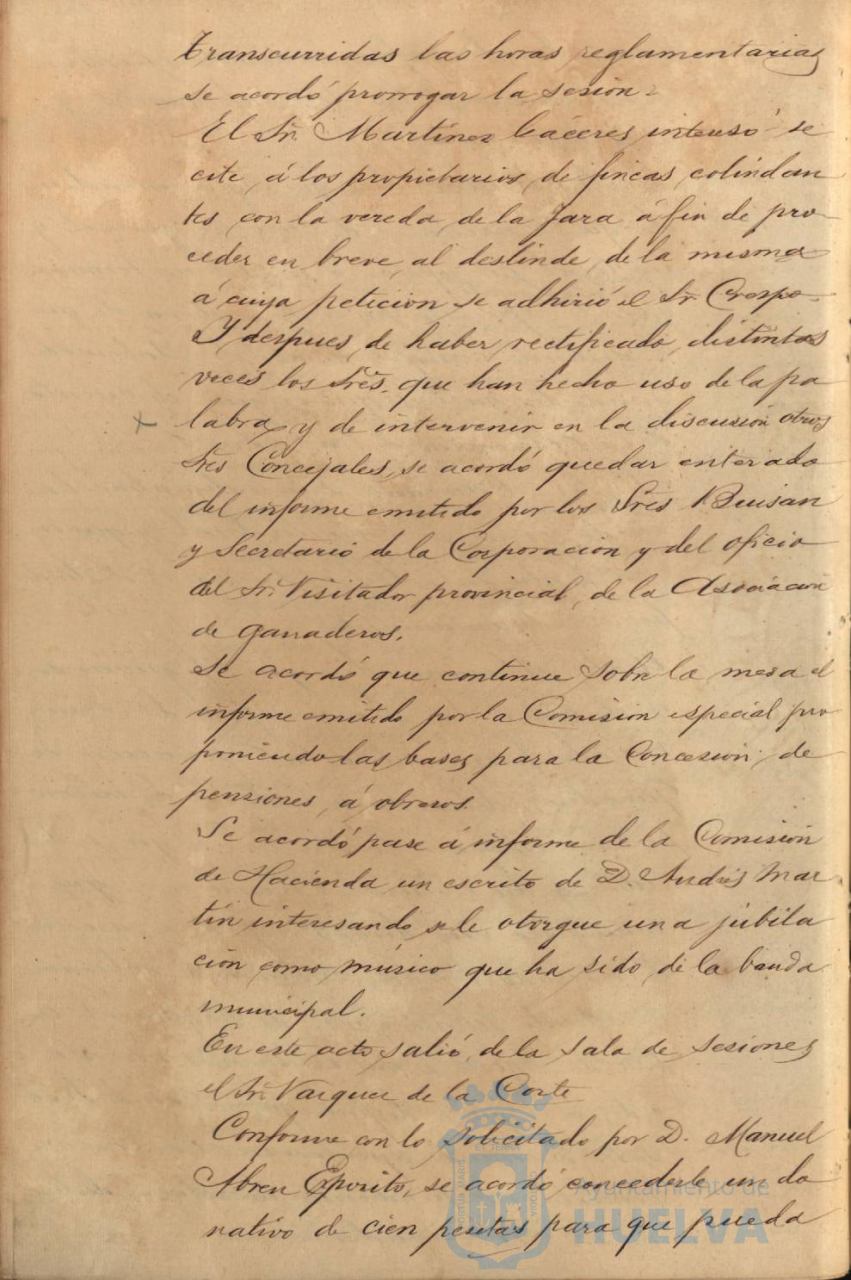 Transcurridas las horas reglamentarias
se acordó prorrogar la sesión.
El Sr. Martinez Cáceres interesó se
cite á los propietarios de fincas colindan
tes con la vereda de la Jara á fin de pro-
ceder en breve al deslinde de la misma
á cuya petición se adhirió el Sr. Crespo.
Y despues de haber rectificado distintas
veces los Sres. que han hecho uso de la pa
labra y de intervenir en la discusión otros
Sres Concejales, se acordó quedar enterado
del informe emitido por los Sres Buisan
y Secretario de la Corporación y del oficio
del Sr. Visitador provincial de la Asociación
de ganaderos.
Se acordó que continue sobre la mesa el
informe emitido por la Comisión especial pro
poniendo las bases para la Concesión de
pensiones á obreros.
Se acordó pase á informe de la Comisión
de Hacienda un escrito de D. Andrés Mar
tín interesando se le otorgue una jubila
ción como músico que ha sido de la banda
municipal.
En este acto salió de la sala de sesiones
el Sr. Vazquez de la Corte
Conforme con lo solicitado por D. Manuel
Abreu Esposito, se acordó concederle un do
nativo de cien pesetas para que pueda
Ayuntamiento de
HUELVA